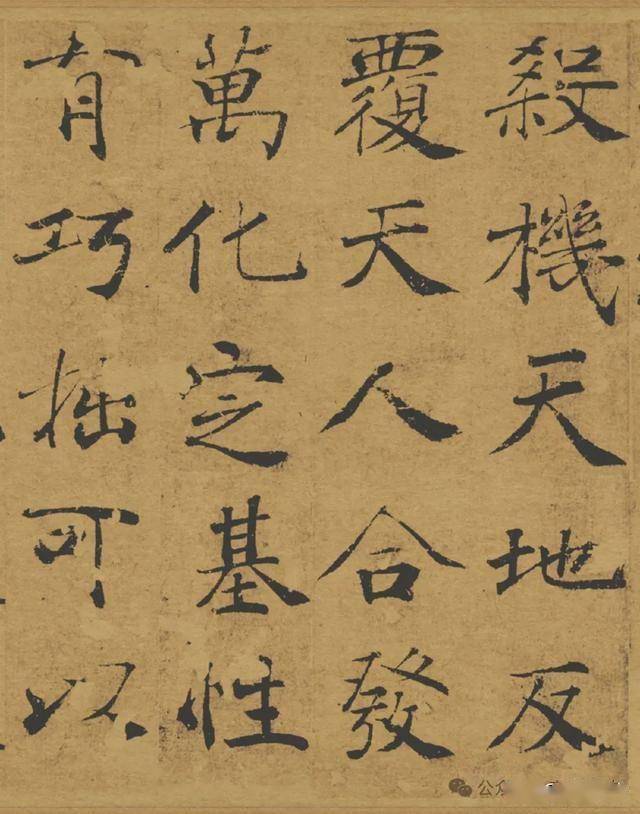 殺機天地反
覆天人合發
萬化定基性
有巧拙可以
公众